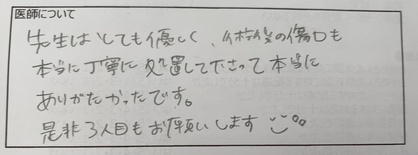 医師について
先生はとても優しく、術後の傷口も
本当に丁寧に処置して下さって本当に
ありがたかったです。
是非3人目もお願いします